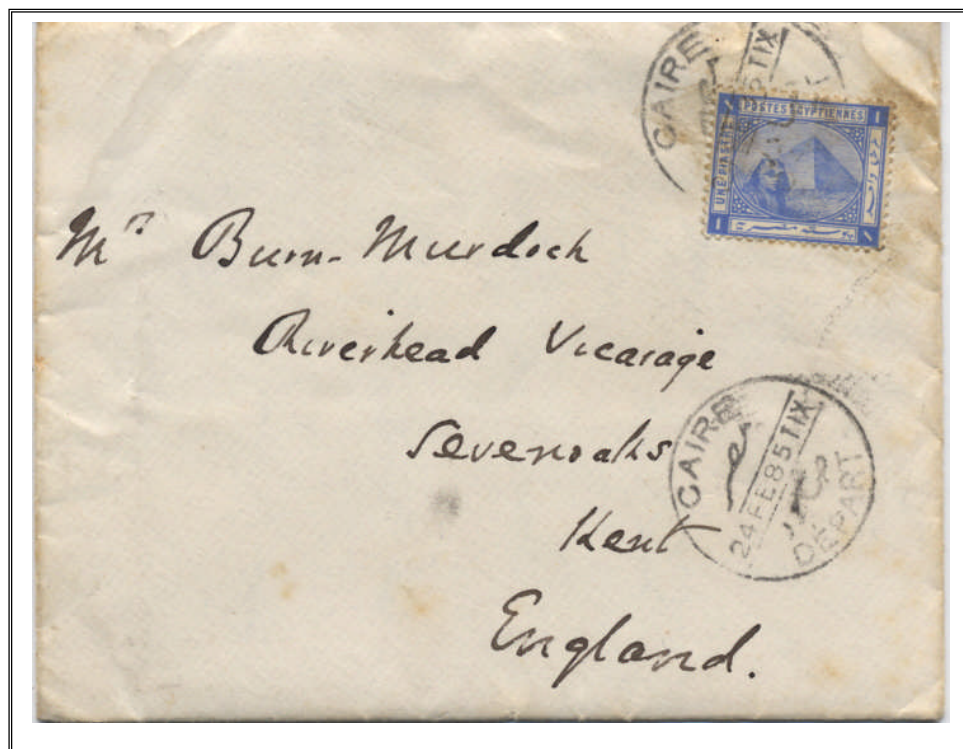 CAIRE
POSTES EGYPTIENNES
UNE PIASTRE
1
1
Mr Burn-Murdoch
Riverhead Vicarage
Sevenoaks
Kent
England.
CAIRE
24 FE 85 T IX
DEPART